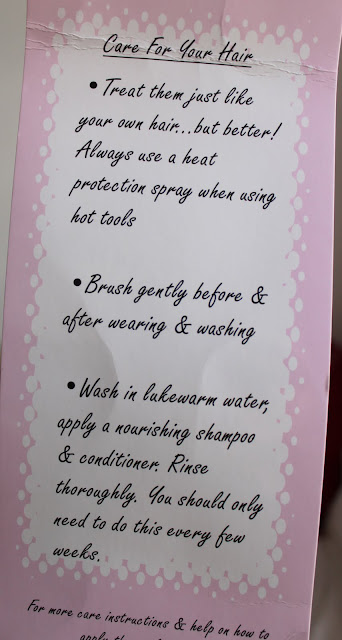 Care For Your Hair
• Treat them just like
your own hair...but better!
Always use a heat
protection spray when using
hot tools
• Brush gently before &
after wearing & washing
• Wash in lukewarm water,
apply a nourishing shampoo
& conditioner. Rinse
thoroughly. You should only
need to do this every few
weeks.
For more care instructions & help on how to
apply